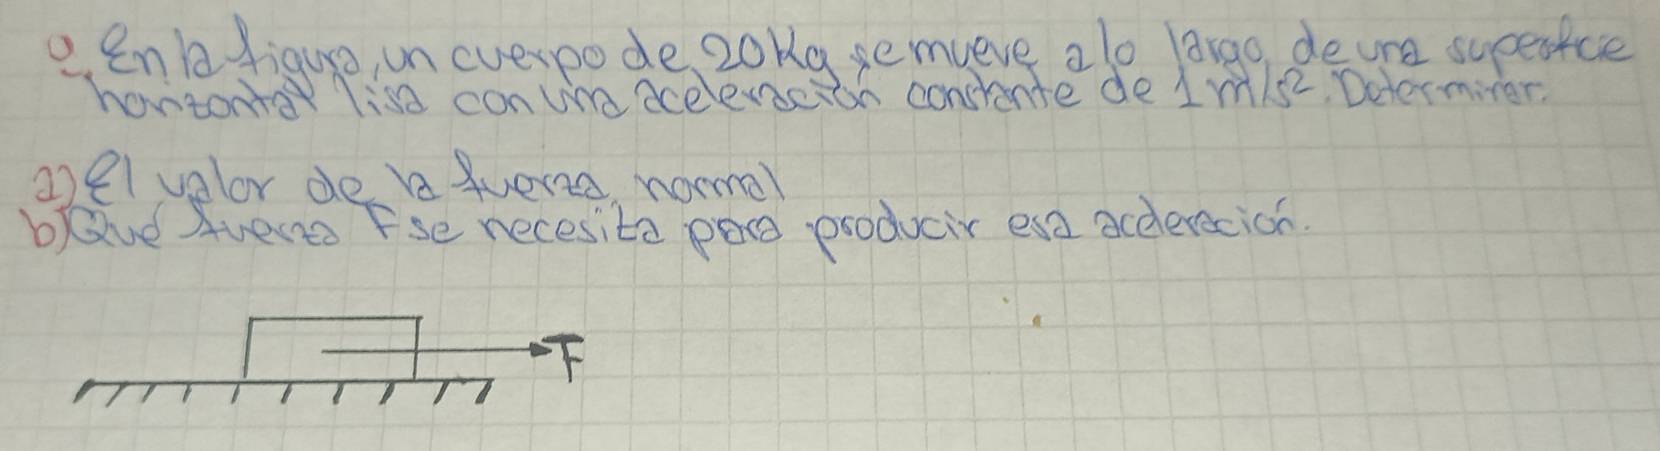 9. En la figura, un cuerpo de 20Kg se mueve a lo largo de una superficie
horizontal lisa con una aceleración constante de 1 m/s². Determinar.
a) El valor de la fuerza normal
b) Qué fuerza F se necesita para producir esa aceleración.
F